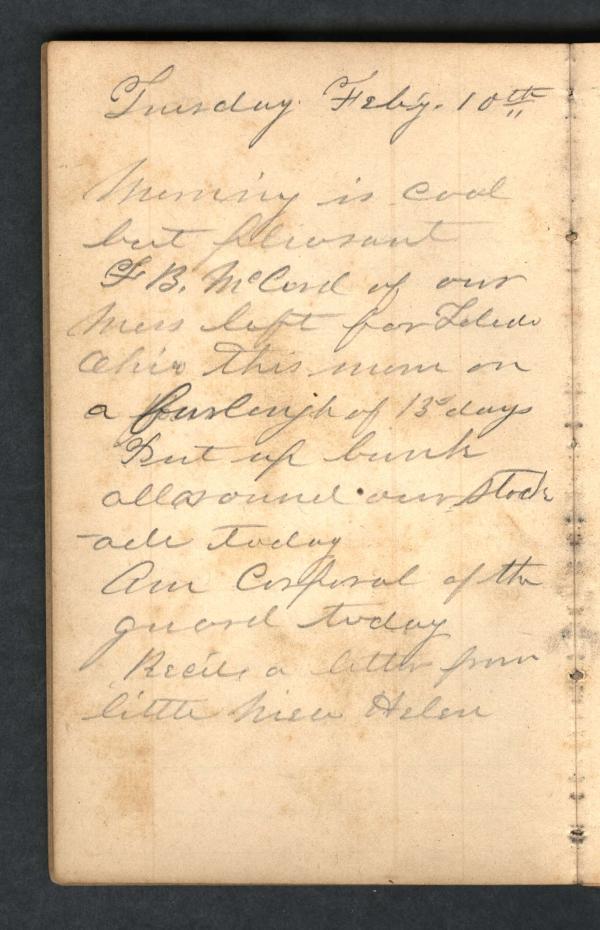 Tuesday Feb'y. 10th
Morning is cool
but pleasant
F B. McCord of our
Mess left for Toledo
Ohio this morn on
a furlough of 15 days
Put up bunk
all around our stock
-ade today
Am Corporal of the
guard today
Recive a letter from
little niece Helen